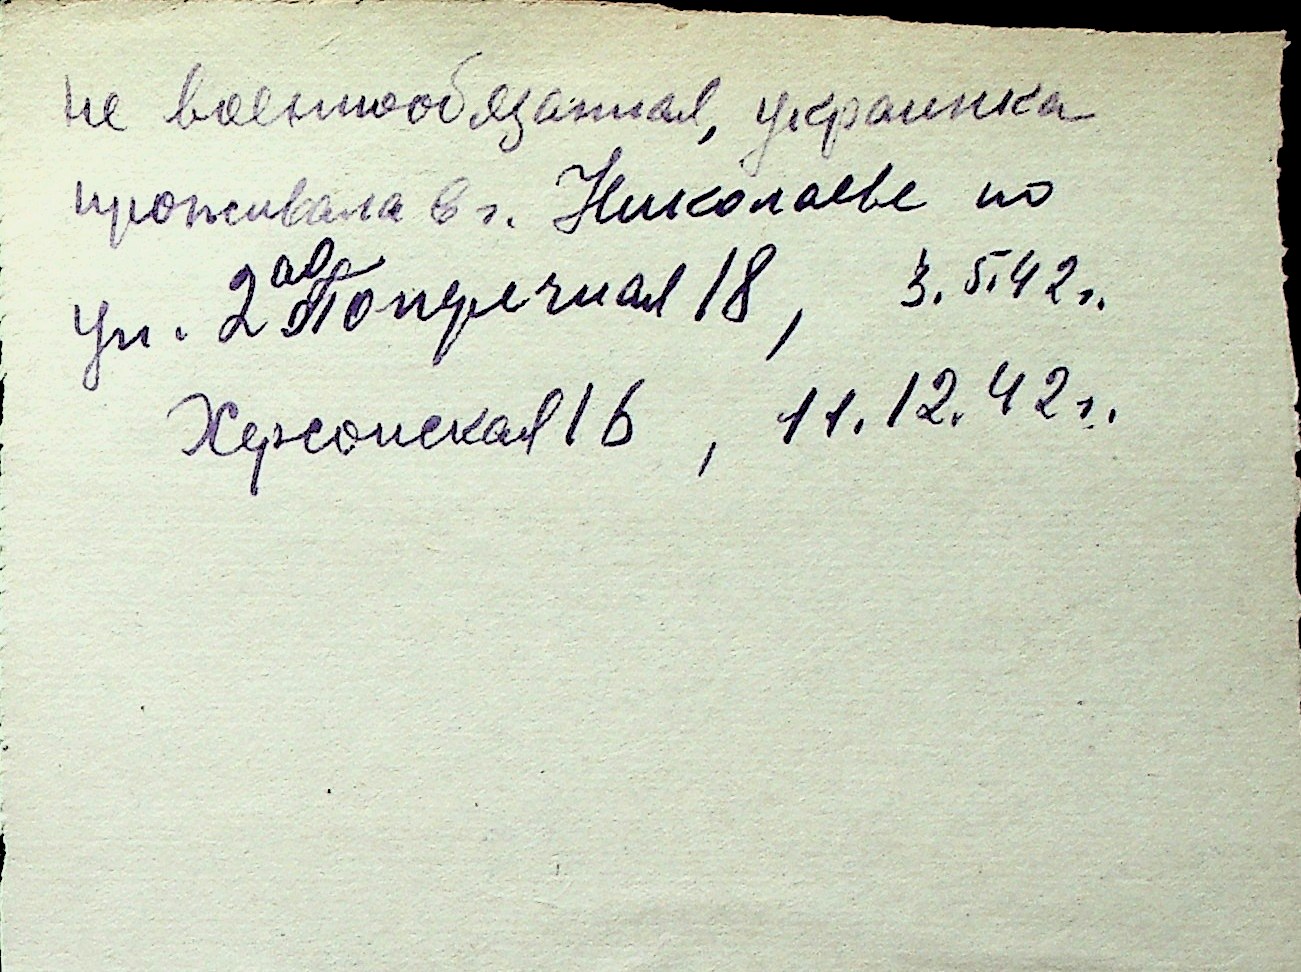 не военнообязанная, украинка
проживала в г. Николаеве по
ул. 2ая Поперечная 18, 3.5.42г.
Херсонская 16, 11.12.42г.